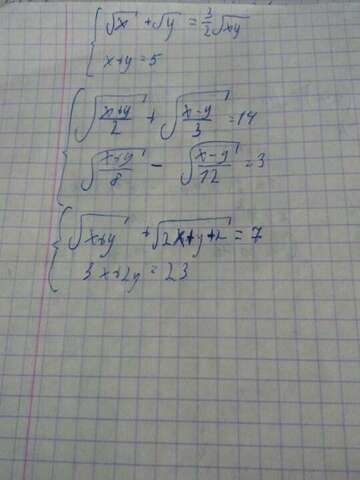 √x + √y = 3/2 √xy
x+y=5
√(x+y)/2 + √(x-y)/3 = 14
√(x+y)/8 - √(x-y)/12 = 3
√x+y + √2x+y+2 = 7
3x+2y=23